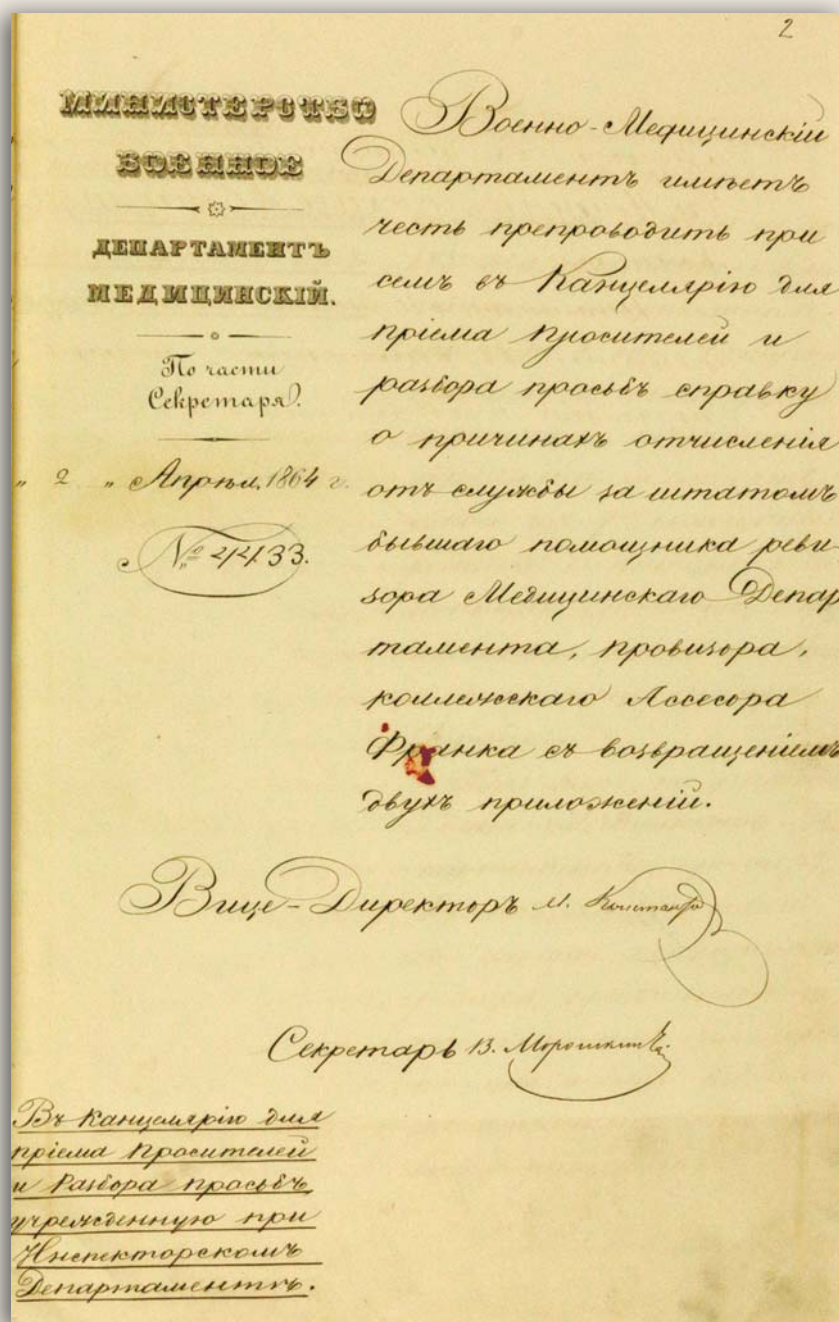 2
МИНИСТЕРСТВО
ВОЕННОЕ
ДЕПАРТАМЕНТЪ
МЕДИЦИНСКІЙ.
По части
Секретаря.
" 2 " Апрѣля 1864 г.
№ 4433.
Военно-Медицинскій
Департаментъ имѣетъ
честь препроводить при
семъ въ Канцелярію для
пріема просителей и
разбора просьбъ справку
о причинахъ отчисленія
отъ службы за штатомъ
бывшаго помощника реви-
зора Медицинскаго Депар
тамента, провизора,
коллежскаго Ассесора
Франка съ возвращеніемъ
двухъ приложеній.
Вице-Директоръ
Секретарь В. Морошкинъ
Въ Канцелярію для
пріема Просителей
и Разбора просьбъ,
учрежденную при
Инспекторскомъ
Департаментѣ.